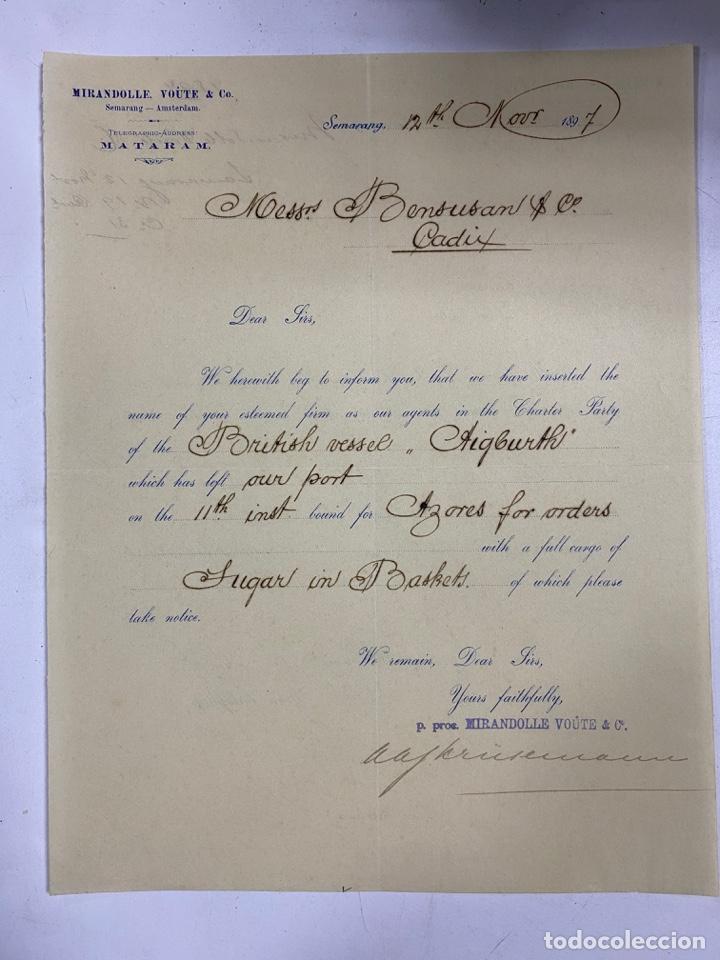 MIRANDOLLE, VOÛTE & Co.
Semarang — Amsterdam.
TELEGRAPHIC-ADDRESS:
MATARAM.
Semarang, 12th Novr 1897
Messrs Bensusan & Co.
Cadix
Dear Sirs,
We herewith beg to inform you, that we have inserted the
name of your esteemed firm as our agents in the Charter Party
of the British vessel „Aigburth"
which has left our port
on the 11th inst. bound for Azores for orders
with a full cargo of
Sugar in Baskets. of which please
take notice.
We remain, Dear Sirs,
Yours faithfully,
p. proc. MIRANDOLLE VOÛTE & Co.
todocoleccion.net